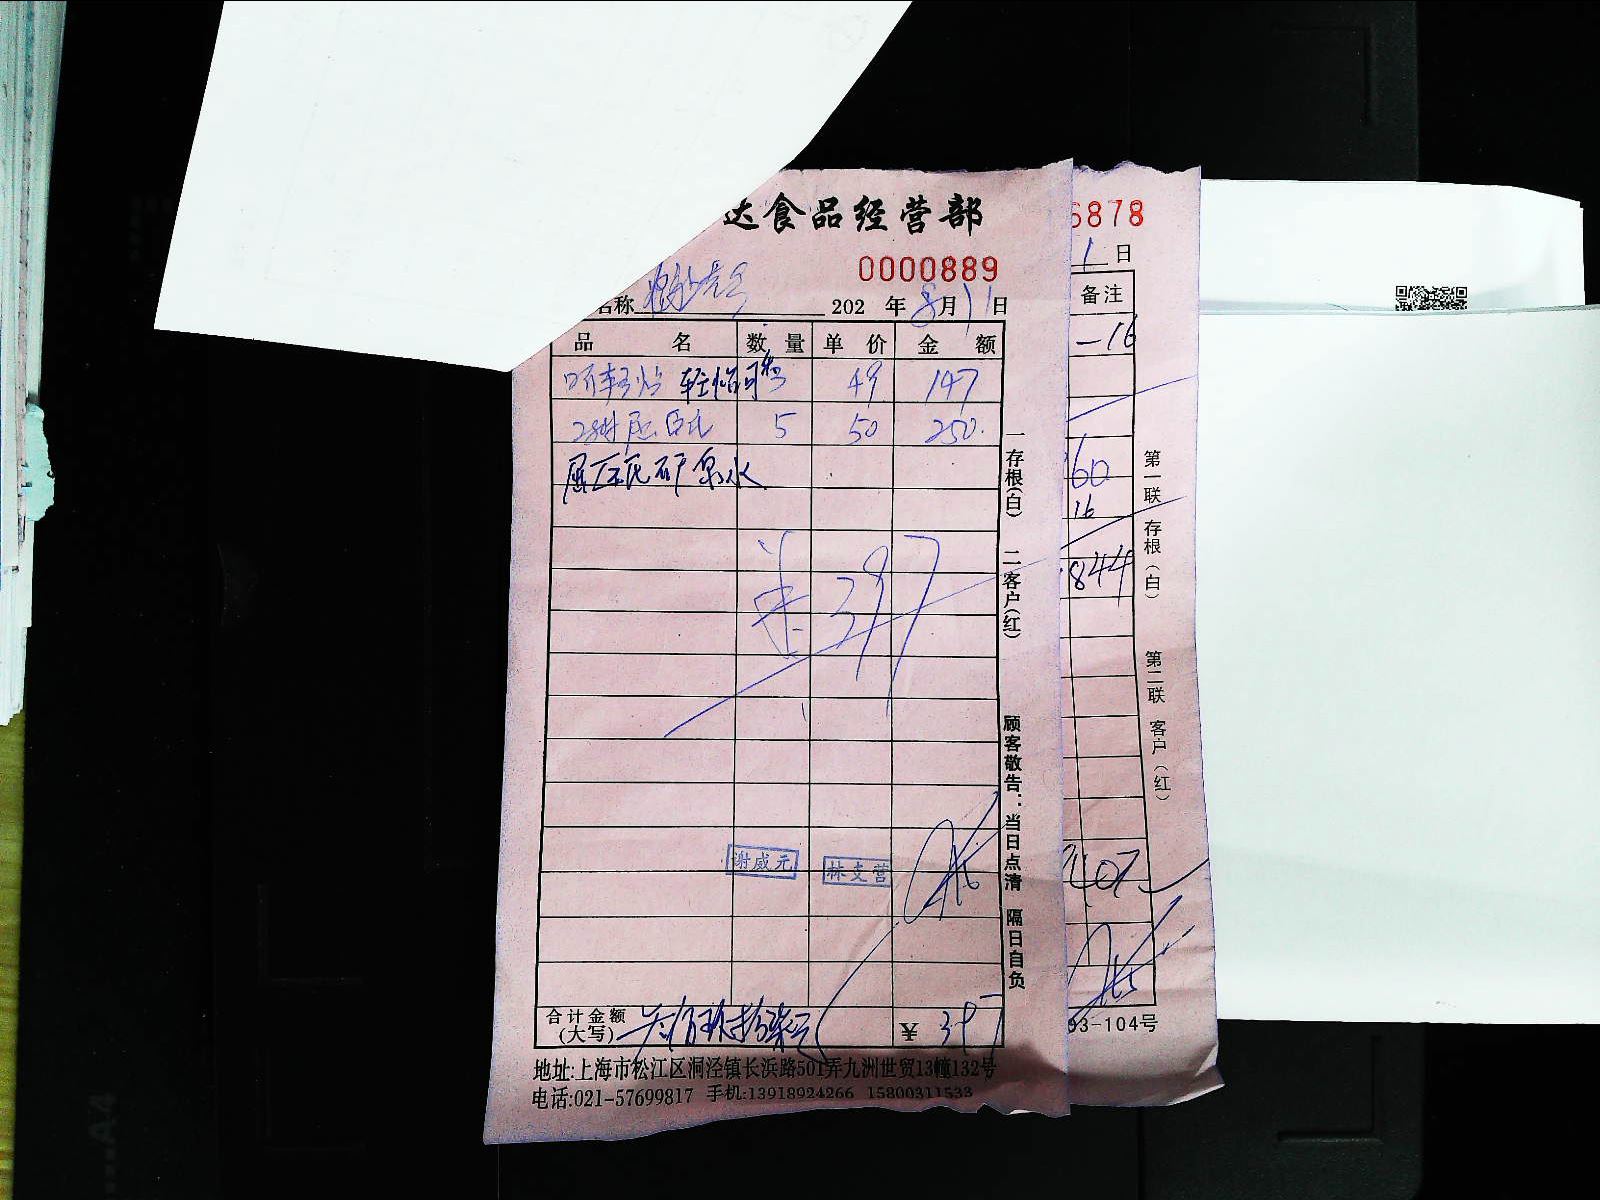 达食品经营部
0000889
名称 202 年 8月11日
品 名 数 量 单 价 金 额
听轻怡 轻怡可 49 147
5 50 250.
屈臣氏矿泉水
397
谢威元 林支营
合计金额
(大写) 叁佰玖拾柒元 ¥ 397
地址:上海市松江区洞泾镇长浜路501弄九洲世贸13幢132号
电话:021-57699817 手机:13918924266 15800311533
一存根(白) 二客户(红)
顾客敬告：当日点清 隔日自负
6878
1 日
备注
-16
60
16
844
407
93-104号
第一联 存根（白） 第二联 客户（红）
A4